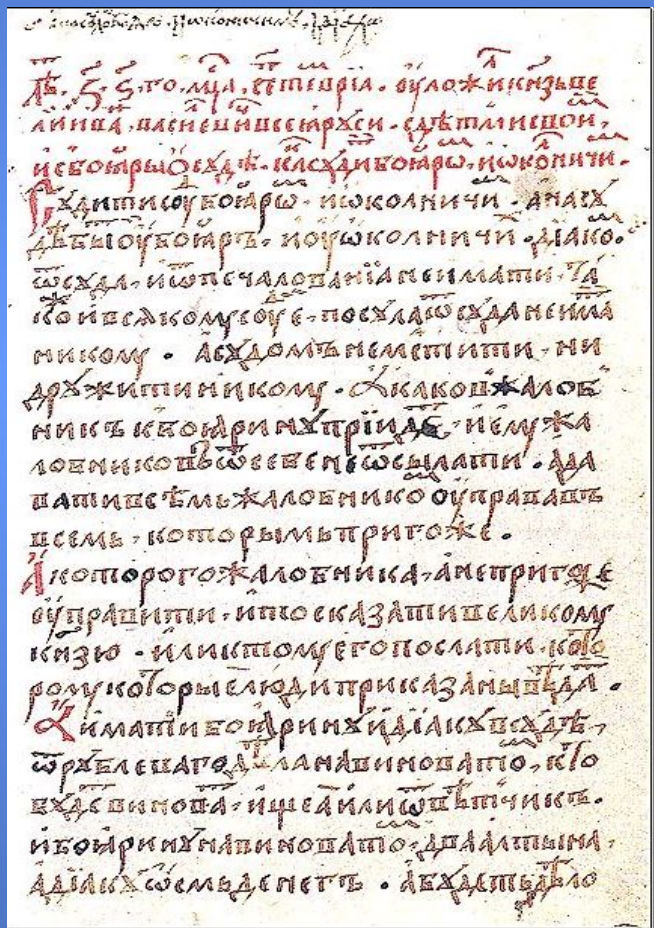 лѣ҇. ҂з҃. ѕ҃. го. мц҃а, септеврїа. оуложи кн҃зь ве
ликїи ива҇ васильеви҇ всеѧ рꙋси. с дѣтми свои,
и с боꙗры ѡ сꙋдѣ. ка҇ сꙋдити боꙗро. и ѡколничи.
Сꙋдити сꙋ҇ боꙗро. и ѡколничи. а на сꙋ
дѣ быти оу боꙗръ. и оу ѡколничи. дїако.
ѿ сꙋда. и ѿ печалованїа не имати. та
ко и всѧкомꙋ сꙋдїе. посꙋла ѿ сꙋда не има
никомꙋ. а сꙋдомъ не мстити, ни
дрꙋжити никомꙋ. а каков жалоб
никъ к боꙗринꙋ прїиде. и емꙋ жа
лобниковъ ѿ себе не ѿсылати. а да
вати всѣмъ жалобнико оуправа въ
всемь. которымъ пригоже.
А которого жалобника. а не пригоже
оуправити. и то сказати великомꙋ
кн҃зю. или к томꙋ его послати. кото
ромꙋ которые люди приказаны вѣда.
А имати боꙗринꙋ и дїакꙋ в сꙋдѣ,
ѿ рꙋблеваго дѣла на виновато, кто
бꙋде винова. ищеа или ѿвѣтчикъ.
и боꙗринꙋ на виновато. два алтына,
а дїакꙋ ѡсмь денегъ. а бꙋдеть дѣло